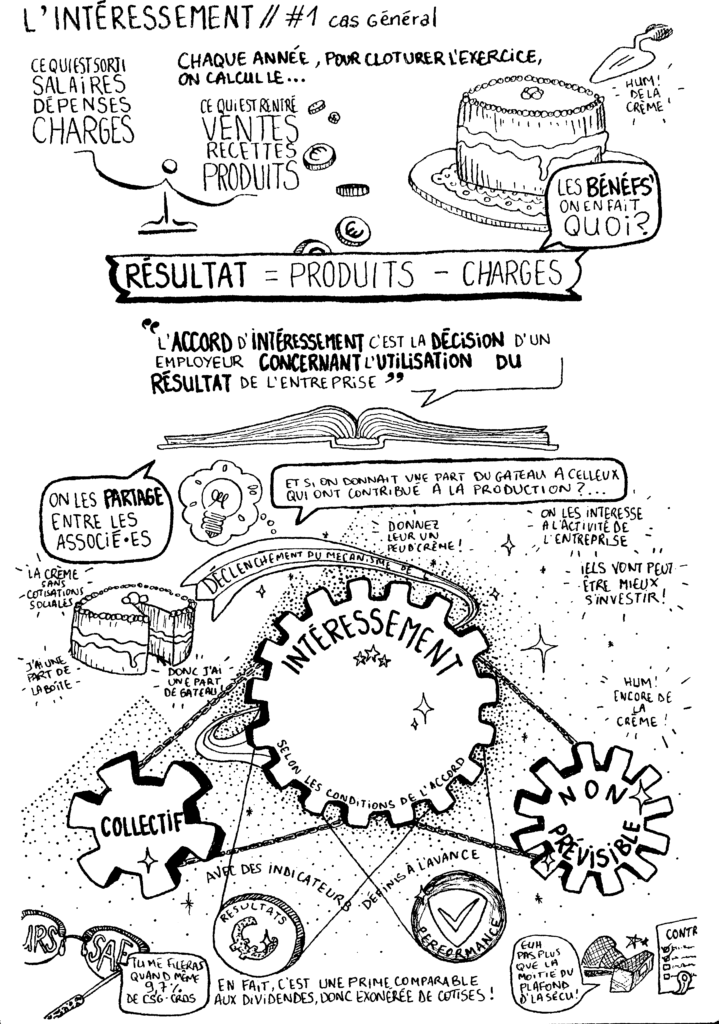 L'INTÉRESSEMENT // #1 cas Général
CE QUI EST SORTI
SALAIRES
DÉPENSES
CHARGES
CHAQUE ANNÉE, POUR CLOTURER L'EXERCICE,
ON CALCULE...
CE QUI EST RENTRÉ
VENTES
RECETTES
PRODUITS
HUM!
DE LA
CRÈME!
LES BÉNÉFS'
ON EN FAIT
QUOI?
RÉSULTAT = PRODUITS - CHARGES
"L'ACCORD D'INTÉRESSEMENT C'EST LA DÉCISION D'UN
EMPLOYEUR CONCERNANT L'UTILISATION DU
RÉSULTAT DE L'ENTREPRISE"
ON LES PARTAGE
ENTRE LES
ASSOCIÉ•ES
ET SI ON DONNAIT UNE PART DU GATEAU A CELLEUX
QUI ONT CONTRIBUÉ A LA PRODUCTION?...
DONNEZ
LEUR UN
PEU D'CRÈME!
ON LES INTERESSE
A L'ACTIVITÉ DE
L'ENTREPRISE
IELS VONT PEUT
ÊTRE MIEUX
S'INVESTIR!
LA CRÈME
SANS
COTISATIONS
SOCIALES
DÉCLENCHEMENT DU MECANISME DE L'
J'AI UNE
PART DE
LA BOÎTE
DONC J'AI
UNE PART
DE GATEAU!
INTÉRESSEMENT
SELON LES CONDITIONS DE L'ACCORD
HUM!
ENCORE DE
LA
CRÈME!
COLLECTIF
NON
PRÉVISIBLE
AVEC DES INDICATEURS
DÉFINIS À L'AVANCE
RESULTATS
PERFORMANCE
URS
SAF
TU ME FILERAS
QUAND MÊME
9,7%
DE CSG-CRDS
EN FAIT, C'EST UNE PRIME COMPARABLE
AUX DIVIDENDES, DONC EXONÉRÉE DE COTISES!
EUH
PAS PLUS
QUE LA
MOITIÉ DU
PLAFOND
D'LA SÉCU!
CONTR